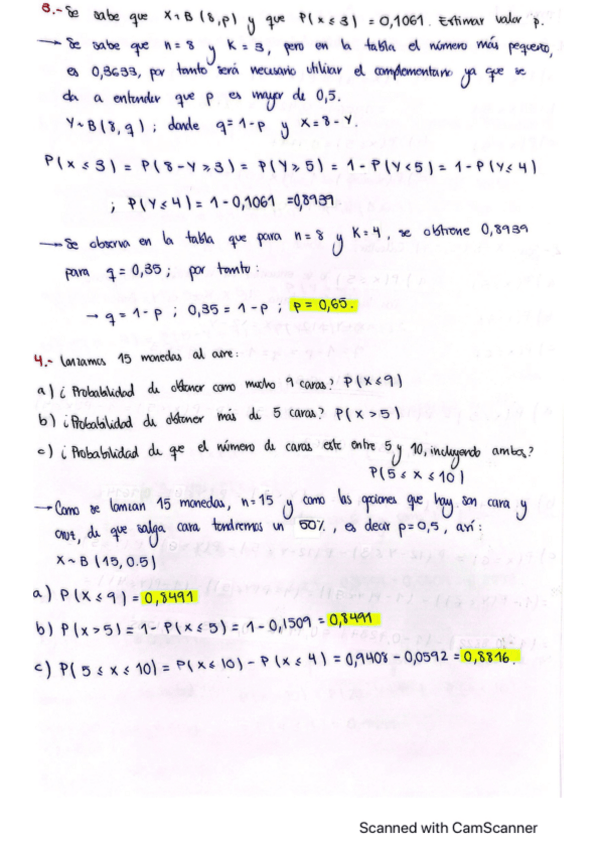 3.- Se sabe que X~B (8,p) y que P(x ≤ 3) = 0,1061. Estimar valor p.
→ Se sabe que n=8 y K=3, pero en la tabla el número más pequeño,
es 0,3633, por tanto será necesario utilizar el complementario ya que se
da a entender que p es mayor de 0,5.
Y~B(8,q) ; donde q=1-p y X=8-Y.
P(x ≤ 3) = P(8-Y ≥ 3) = P(Y ≥ 5) = 1 - P(Y<5) = 1 - P(Y ≤ 4)
; P(Y ≤ 4) = 1 - 0,1061 = 0,8939
→ Se observa en la tabla que para n=8 y K=4, se obtiene 0,8939
para q=0,35 ; por tanto:
→ q=1-p ; 0,35 = 1-p ; p=0,65.
4.- Lanzamos 15 monedas al aire:
a) ¿Probabilidad de obtener como mucho 9 caras? P(X ≤ 9)
b) ¿Probabilidad de obtener más de 5 caras? P(x > 5)
c) ¿Probabilidad de que el número de caras este entre 5 y 10, incluyendo ambos?
P(5 ≤ x ≤ 10)
→ Como se lanzan 15 monedas, n=15 y como las opciones que hay son cara y
cruz, de que salga cara tendremos un 50%, es decir p=0,5, así:
X~B (15, 0.5)
a) P(x ≤ 9) = 0,8491
b) P(x > 5) = 1 - P(x ≤ 5) = 1 - 0,1509 = 0,8491
c) P(5 ≤ x ≤ 10) = P(x ≤ 10) - P(x ≤ 4) = 0,9408 - 0,0592 = 0,8816.
Scanned with CamScanner